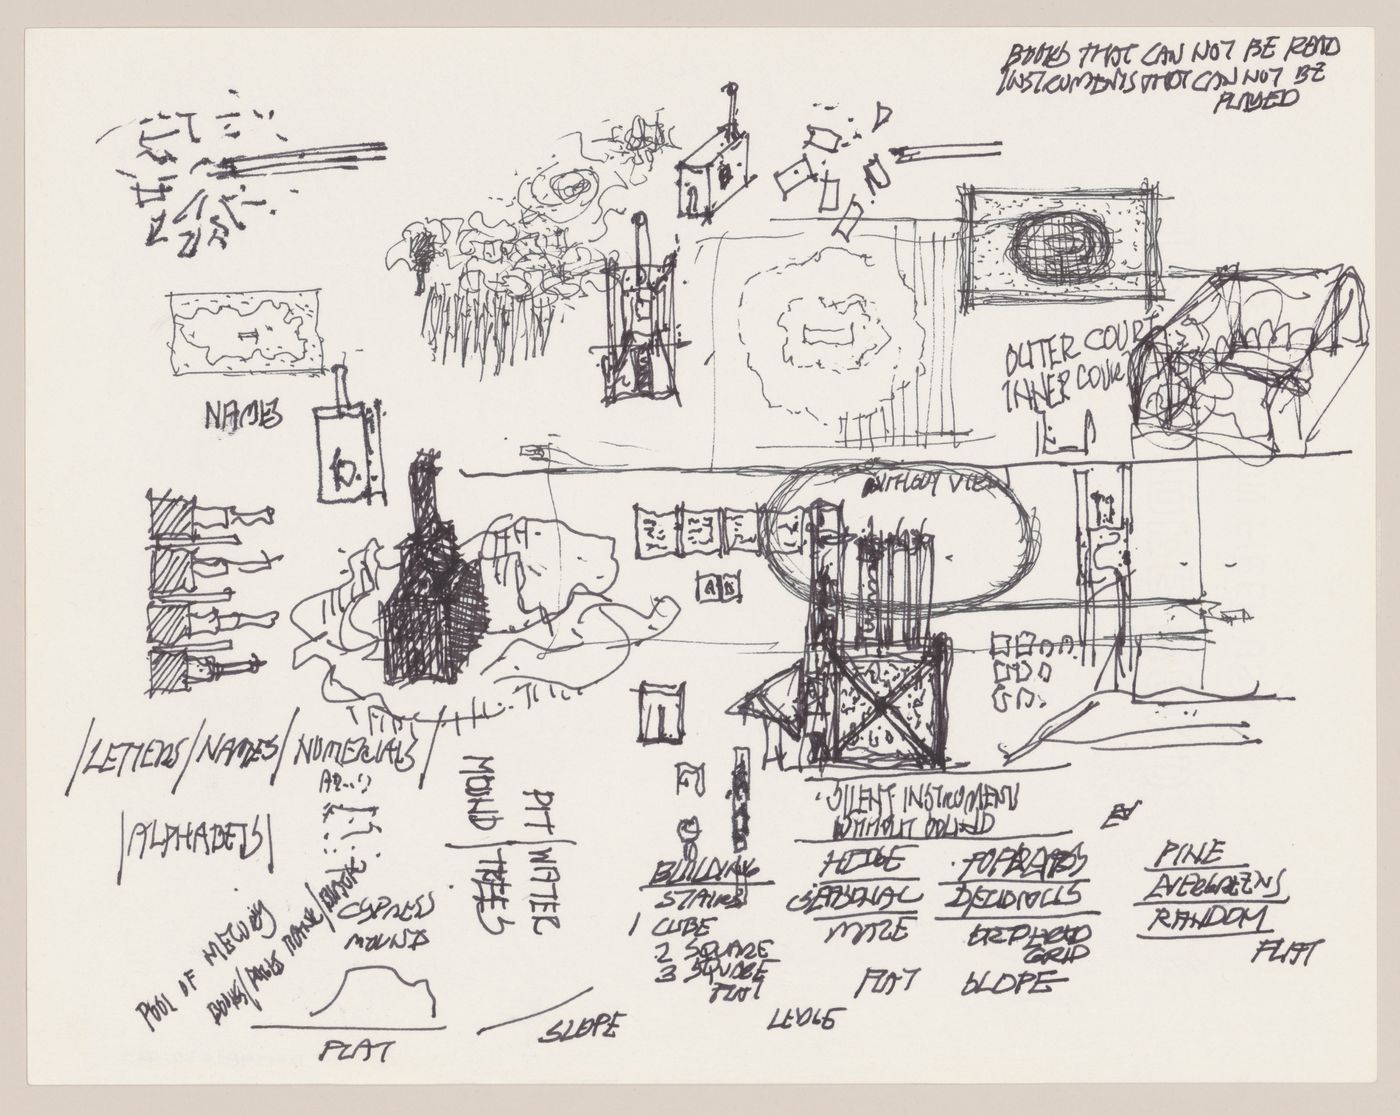 BOOKS THAT CAN NOT BE READ
INSTRUMENTS THAT CAN NOT BE
PLAYED
OUTER COURT
INNER COURT
NAMES
WITHOUT VIEW
A B
/LETTERS/NAMES/NUMERALS/
|ALPHABETS|
MOUND
TREES
PIT
WATER
SILENT INSTRUMENT
WITHOUT SOUND
POOL OF MEMORY
BOOKS/
CYPRESS
MOUNDS
FLAT
SLOPE
BUILDING
STAIRS
1 CUBE
2 SQUARE
3 SQUARE
FLAT
LEDGE
HEDGE
SEASONAL
MAZE
FLAT
DECIDUOUS
GRID
SLOPE
PINE
EVERGREENS
RANDOM
FLAT